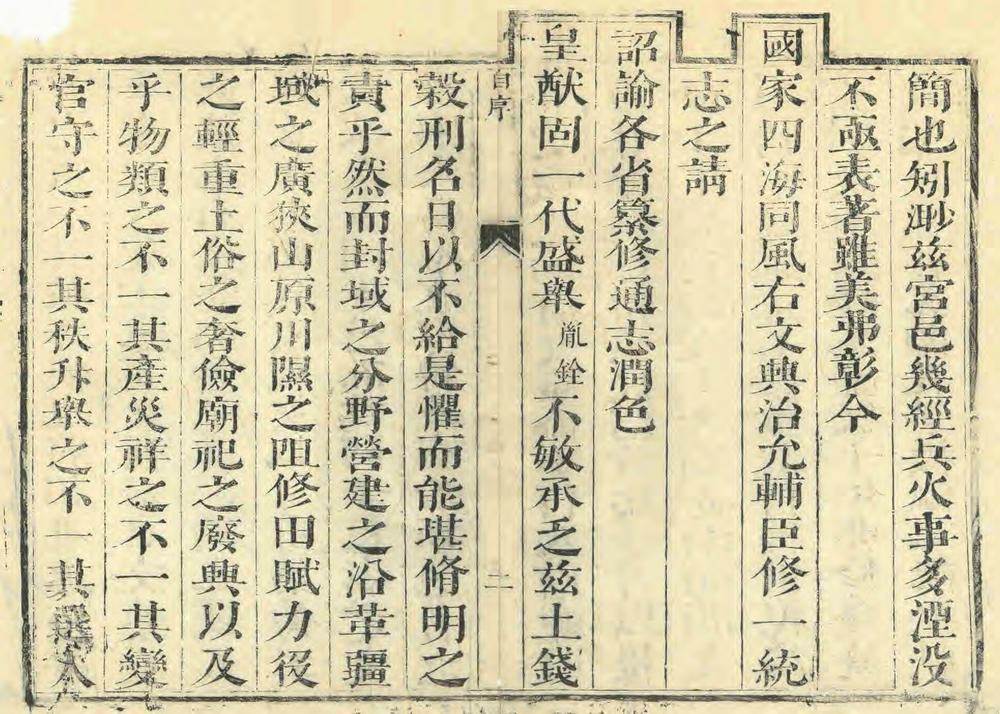 簡也矧渺茲宮邑幾經兵火事多湮没
不亟表著雖美弗彰今
國家四海同風右文興治允輔臣修一統
志之請
詔諭各省纂修通志潤色
皇猷固一代盛舉胤銓不敏承乏茲土錢
自序
二
穀刑名日以不給是懼而能堪脩明之
責乎然而封域之分野營建之沿革疆
域之廣狹山原川隰之阻修田賦力役
之輕重土俗之奢儉廟祀之廢興以及
乎物類之不一其產災祥之不一其變
官守之不一其秩升舉之不一其選人